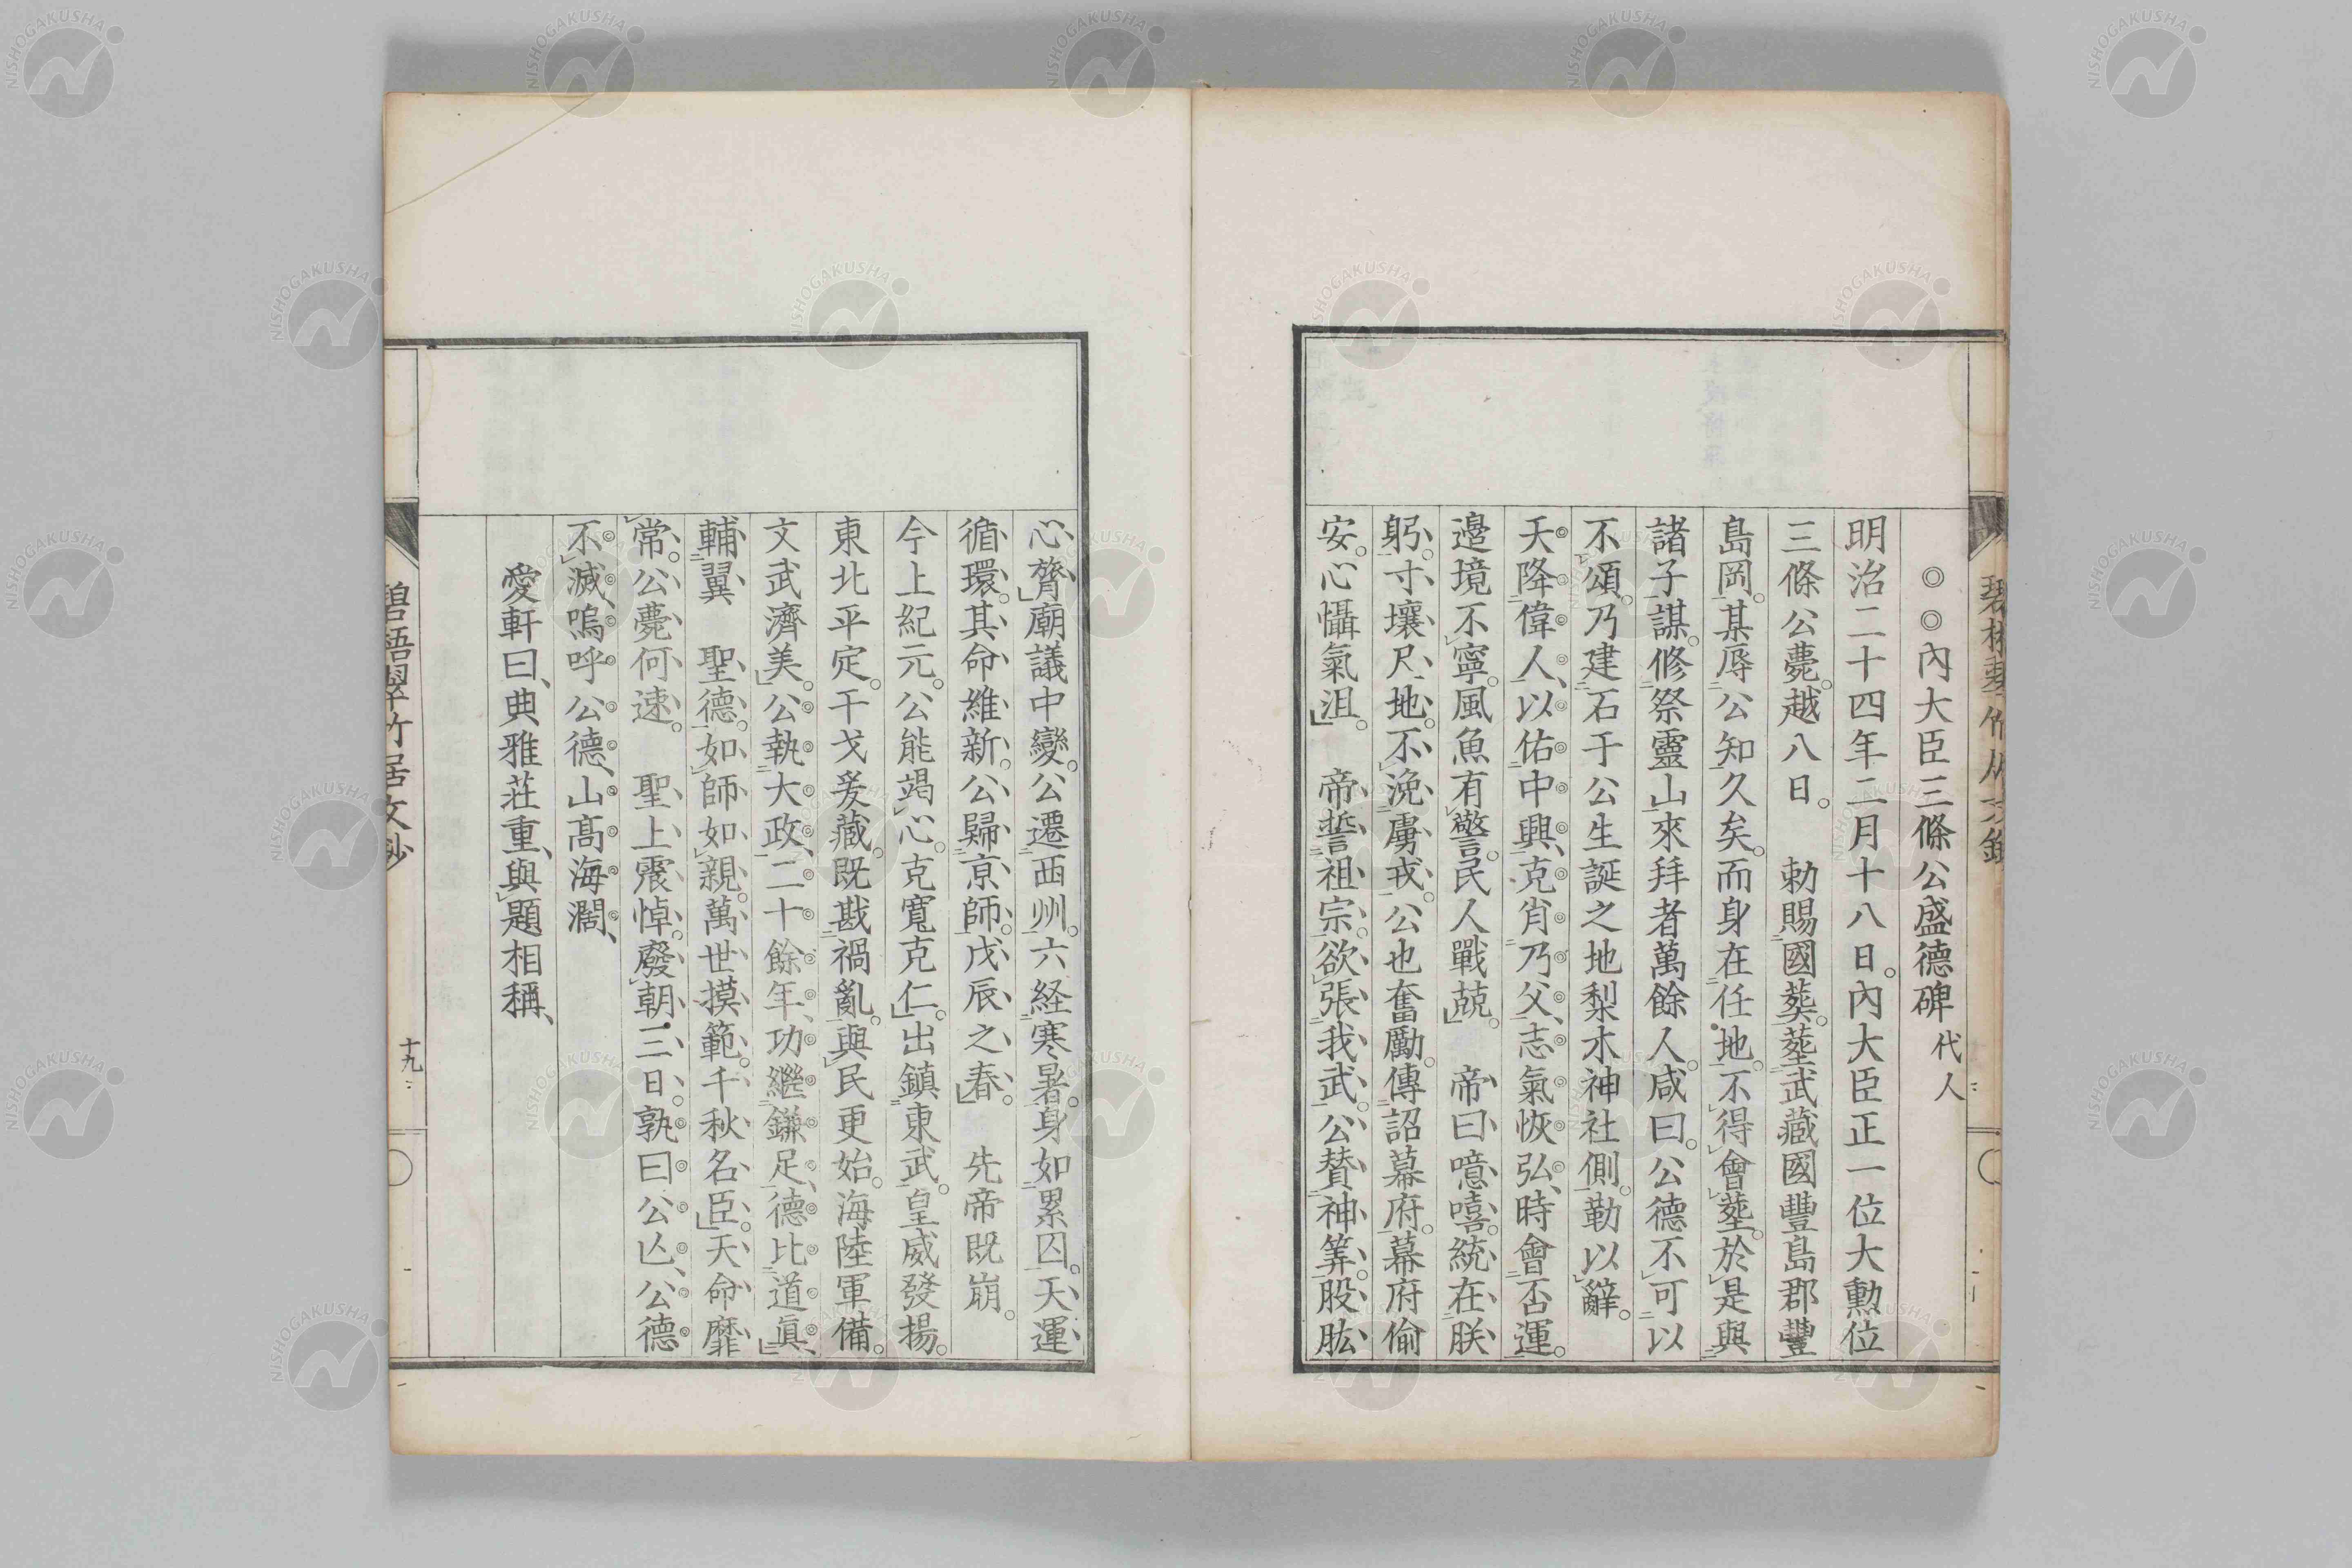 ◎◎內大臣三條公盛德碑 代人
明治二十四年二月十八日。內大臣正一位大勳位
三條公薨。越八日。 勅賜國葬。塟武藏國豐島郡豐
島岡。某辱公知久矣。而身在任地。不得會塟。於是與
諸子謀。修祭靈山。來拜者萬餘人。咸曰。公德不可以
不頌。乃建石于公生誕之地梨木神社側。勒以辭。
天降偉人、以佑中興、克肖乃父、志氣恢弘、時會否運。
邊境不寧。風魚有警。民人戰兢。 帝曰、噫嘻。統在朕
躬。寸壤尺地。不浼虜戎。公也奮勵。傳詔幕府。幕府偷
安。心懾氣沮。 帝誓祖宗。欲張我武。公賛神筭。股肱
心膂。廟議中變。公遷西州。六経寒暑。身如累囚。天運
循環。其命維新。公歸亰師。戊辰之春。 先帝既崩。
今上紀元。公能竭心。克寬克仁。出鎮東武。皇威發揚。
東北平定。干戈爰藏。既戡禍亂。與民更始。海陸軍備。
文武濟美。公執大政、二十餘年、功繼鎌足、德比道眞、
輔翼 聖德。如師如親。萬世摸範。千秋名臣。天命靡
常。公薨何速。 聖上震悼。廢朝三日。孰曰公亾、公德
不滅、嗚呼公德、山高海濶、
愛軒曰、典雅莊重、與題相稱、
碧梧翠竹居文鈔
十九